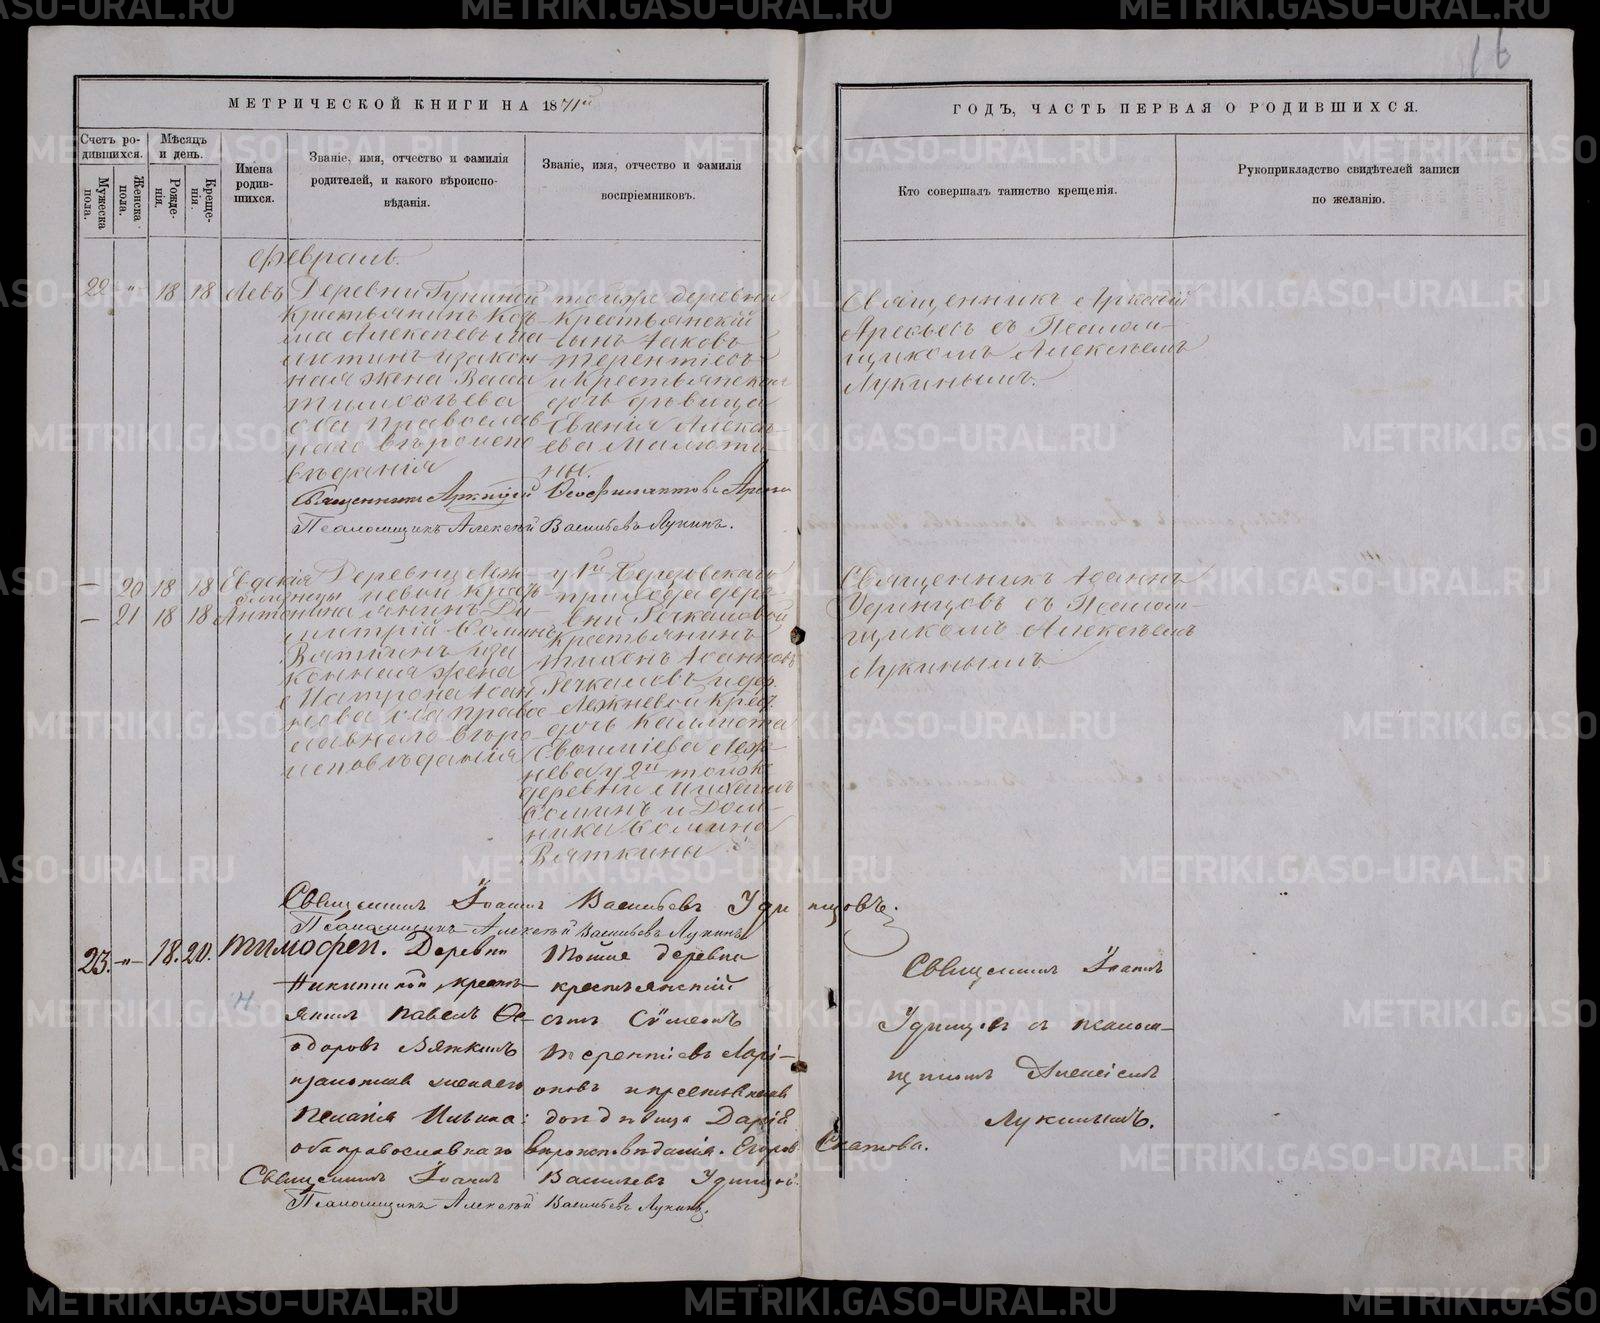 16
МЕТРИЧЕСКОЙ КНИГИ НА 1871й
ГОДЪ, ЧАСТЬ ПЕРВАЯ О РОДИВШИХСЯ.
Счетъ ро-
дившихся.
Мужеска
пола.
Женска
пола.
Мѣсяцъ
и день.
Рожде-
нія.
Креще-
нія.
Имена
родив-
шихся.
Званіе, имя, отчество и фамилія
родителей, и какого вѣроиспо-
вѣданія.
Званіе, имя, отчество и фамилія
воспріемниковъ.
Кто совершалъ таинство крещенія.
Рукоприкладство свидѣтелей записи
по желанію.
Февраль.
22 " 18 18 Левъ
Деревни
крестьянинъ Коз-
ма Алексѣевъ Ма
лютинъ и закон-
ная жена Васса
Тимофѣева
оба православ
наго вѣроиспо
вѣданія
той же деревни
Крестьянскій
сынъ Іаковъ
Терентіевъ
и Крестьянская
дочь дѣвица
Евгенія Алексѣ-
ева Малюти-
ны.
Священникъ Аркадій
Арефьевъ съ Псалом-
щикомъ Алексѣемъ
Лукинымъ.
Священникъ Аркадій Феофилактовъ
Псаломщикъ Алексѣй Васильевъ Лукинъ.
— 20 18 18 Евдокія
— 21 18 18 Антонина
близнецы
Деревни Леж-
невой крест-
янинъ Ди-
митрій Козминъ
Вяткинъ и за
конная жена
Матрона Іоан
нова оба право
славнаго вѣро
исповѣданія
у 1й
прихода дер.
Крестьянинъ
Тихонъ Іоанновъ
и дер.
Лежневой Крес.
дочь
Леж
нева у 2й той же
деревни Михаилъ
Козминъ и Дом-
ника Козмина
Вяткины
Священникъ Іоаннъ
Удинцовъ съ Псалом-
щикомъ Алексѣемъ
Лукинымъ
Священникъ Іоаннъ Васильевъ Удинцовъ.
Псаломщикъ Алексѣй Васильевъ Лукинъ
23. -"- 18. 20. Тимофей.
Деревни
Никитиной, кресть-
янинъ Павелъ Ѳе-
одоровъ Вяткинъ
и законная жена его
Пелагія Ильина:
оба православнаго вѣроисповѣданія.
Тойже деревни
крестьянскій
сынъ Сѵмеонъ
Терентіевъ Ларі-
оновъ и крестьянская
дочь дѣвица Дарія
Егоров. Скатова.
Священникъ Іоаннъ
Удинцовъ съ псалом-
щикомъ Алексіемъ
Лукинымъ.
Священникъ Іоаннъ Васильевъ Удинцов.
Псаломщикъ Алексѣй Васильевъ Лукинъ.
METRIKI.GASO-URAL.RU